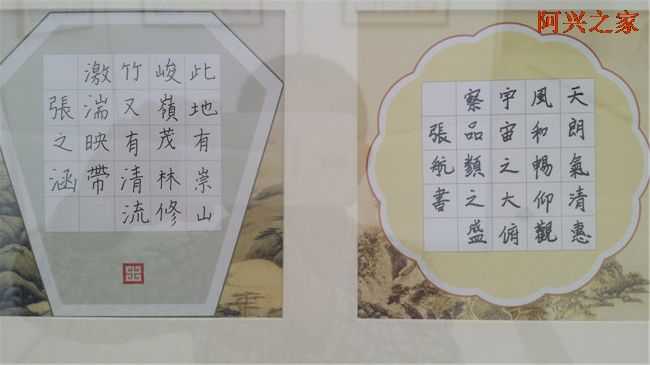 阿兴之家
此地有崇山
峻嶺茂林修
竹又有清流
激湍映帶
張之涵
天朗氣清惠
風和暢仰觀
宇宙之大俯
察品類之盛
張航書